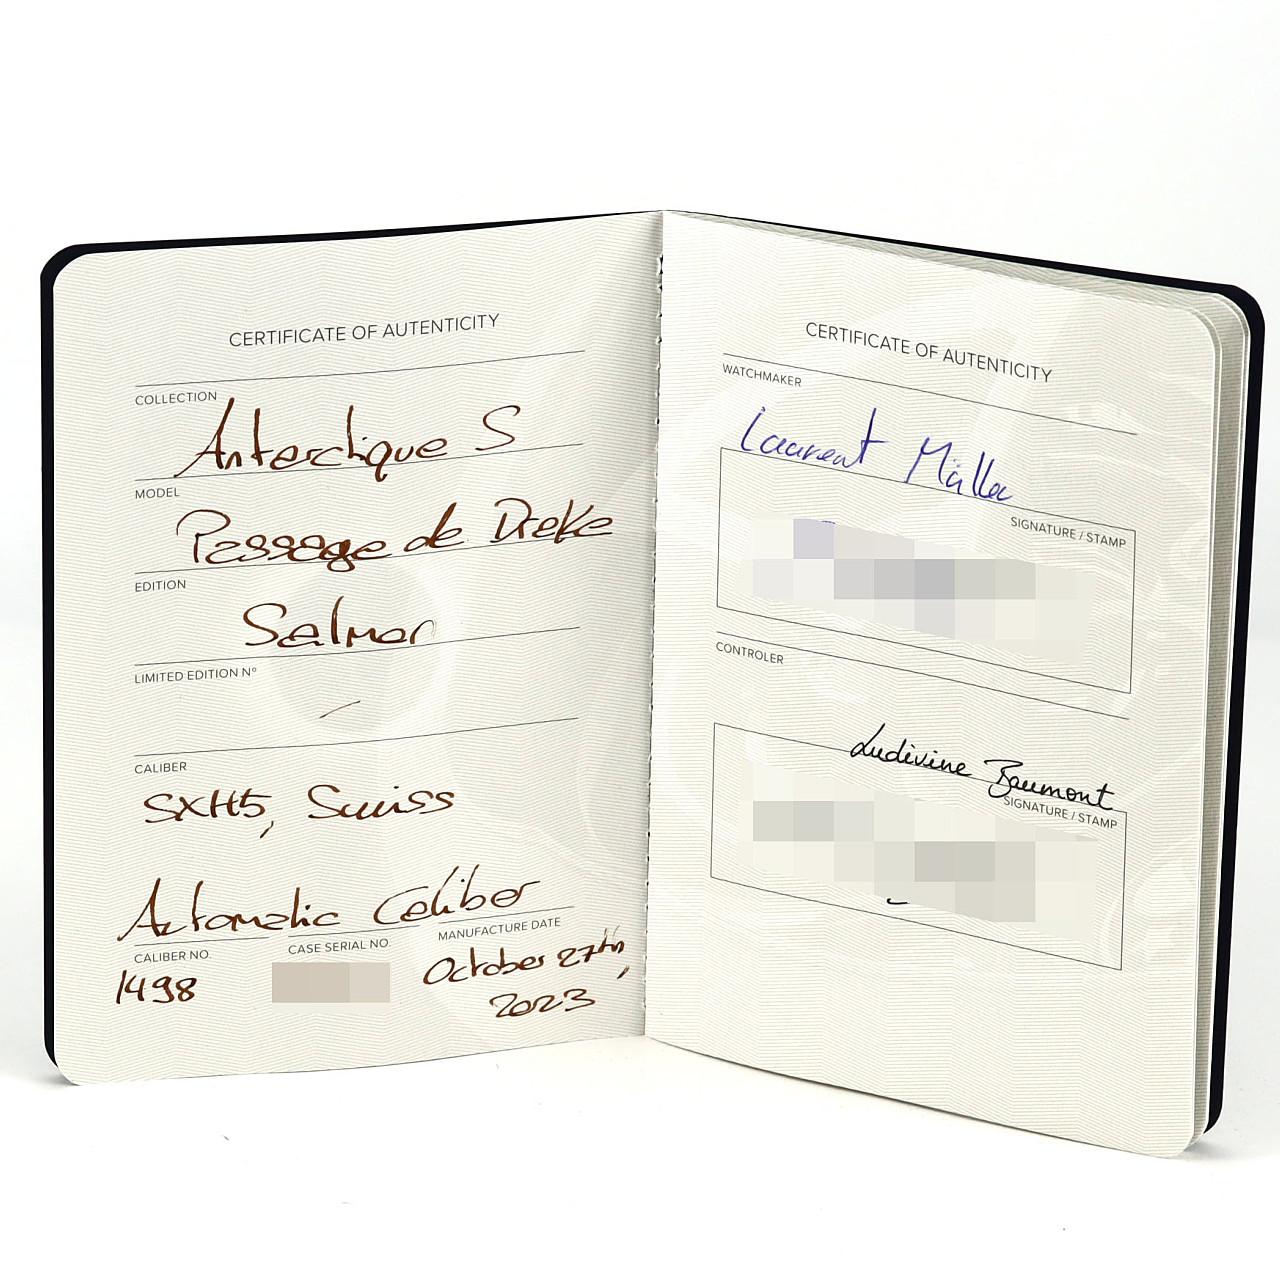 CERTIFICATE OF AUTENTICITY
COLLECTION
Antarctique S
MODEL
Passage de Drake
EDITION
Salmon
LIMITED EDITION Nº
CALIBER
SXH5, Swiss
Automatic Caliber
CALIBER NO.
CASE SERIAL NO.
MANUFACTURE DATE
1498
October 27th,
2023
CERTIFICATE OF AUTENTICITY
WATCHMAKER
Laurent
SIGNATURE / STAMP
CONTROLER
Ludivine Baumont
SIGNATURE / STAMP